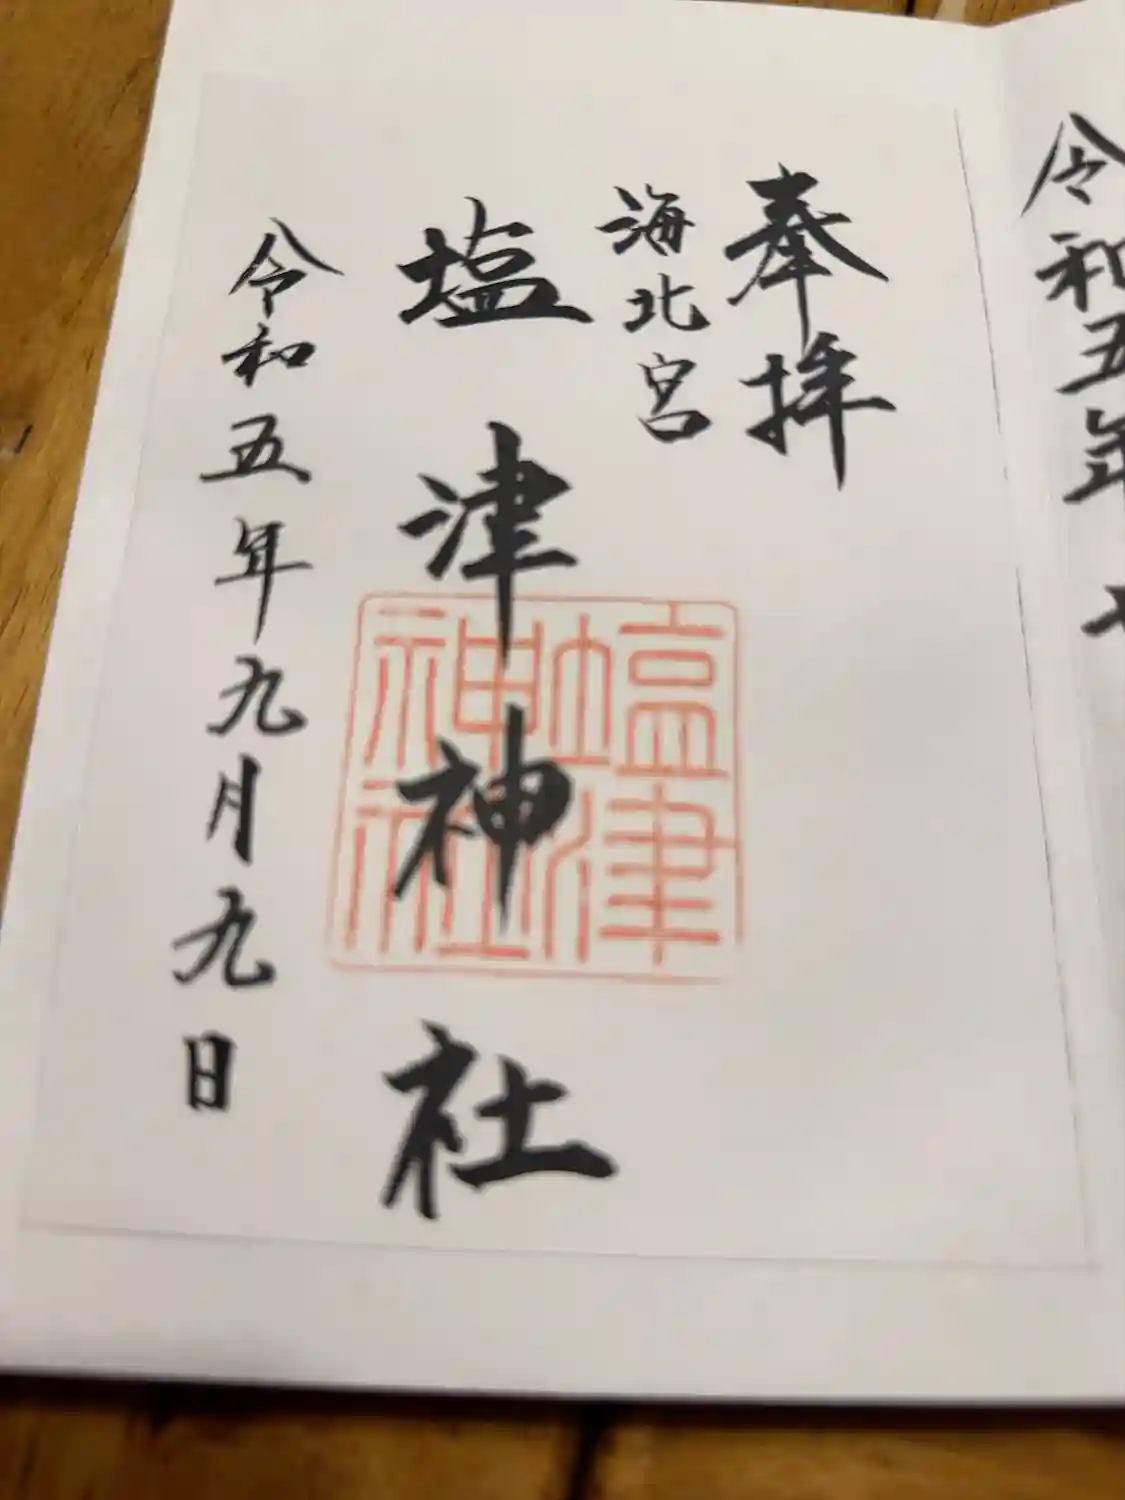 令和五年
奉拝
海北宮
塩津神社
塩津神社
令和五年九月九日